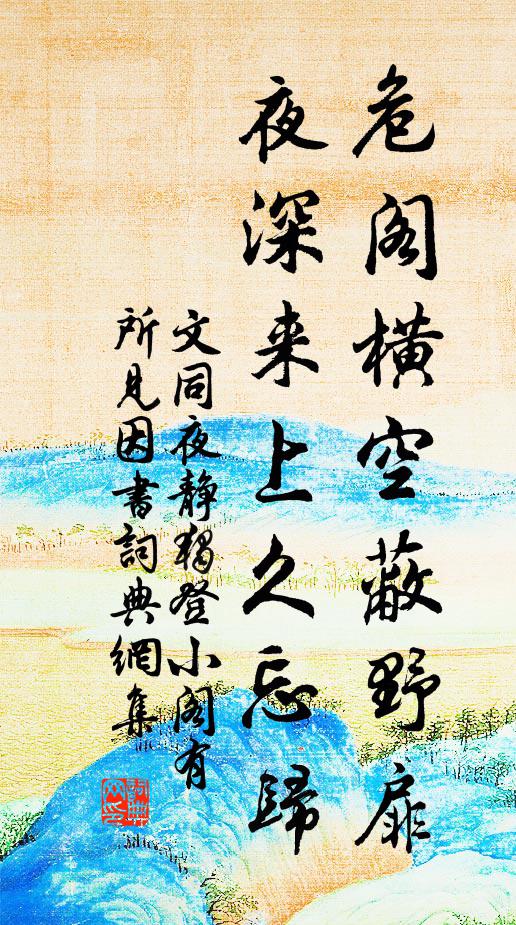 危阁横空蔽野扉
夜深来上久忘歸
文同夜静獨登小阁有
所見因書詞典網集